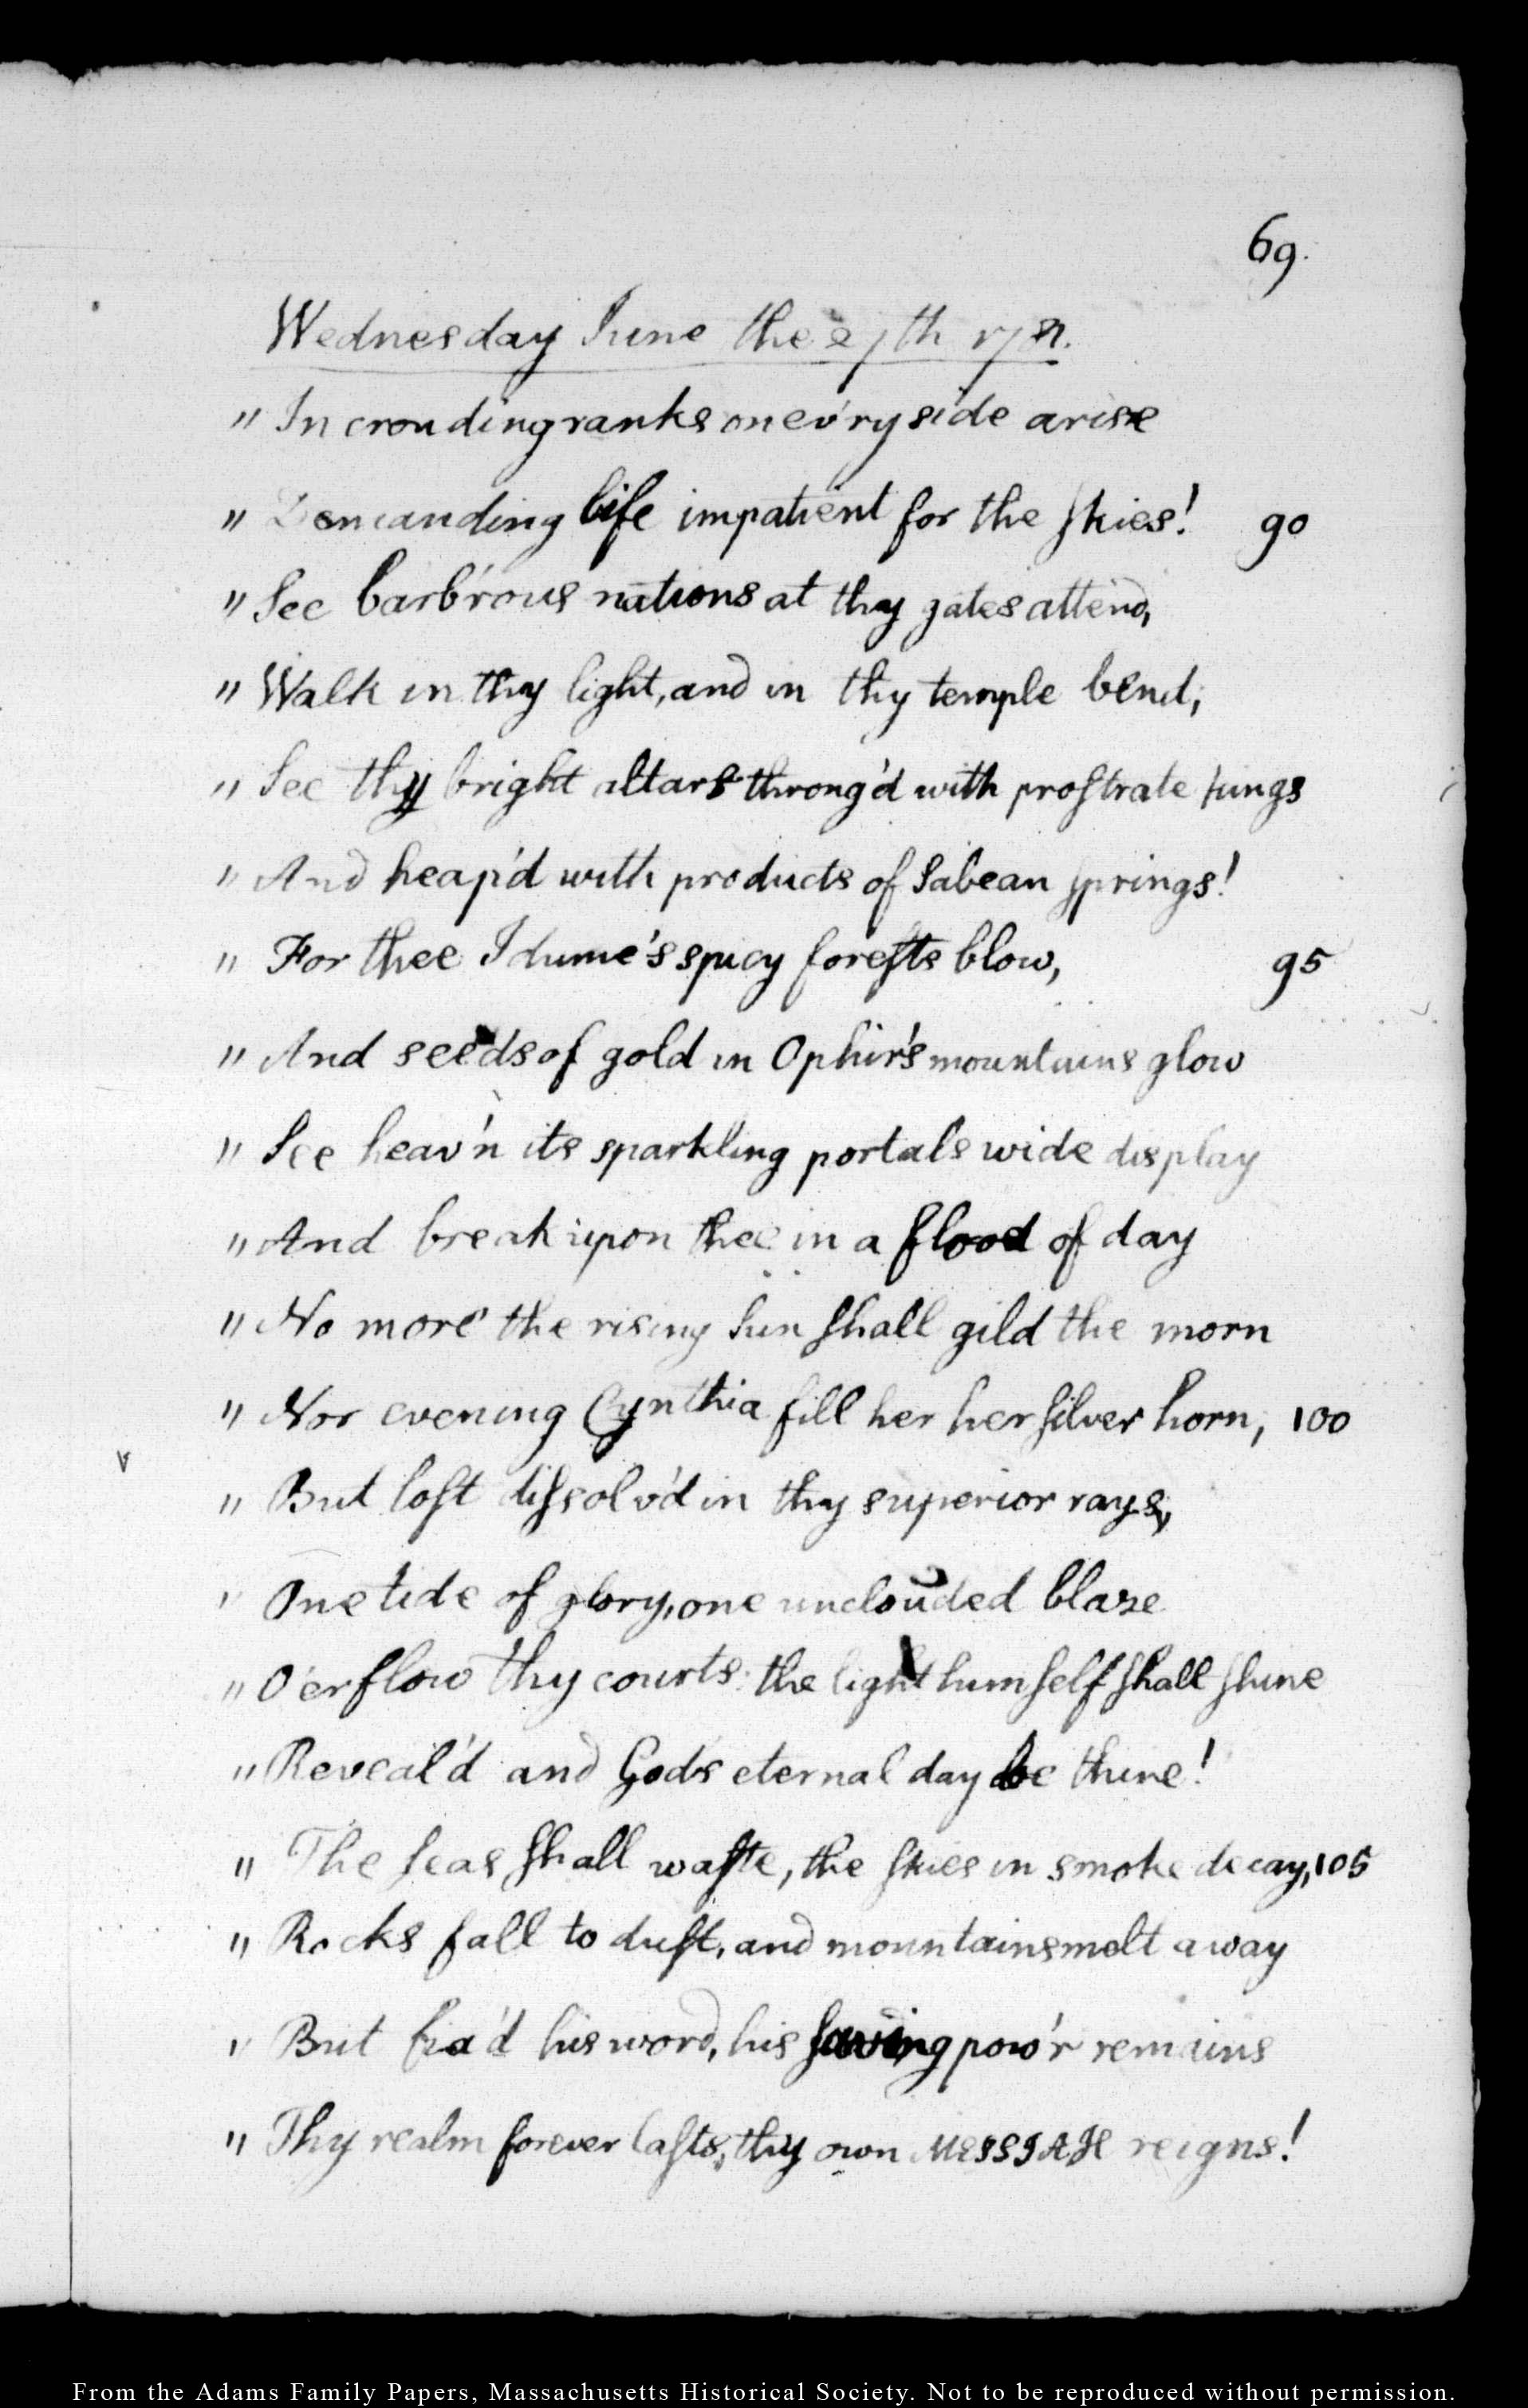 69.
Wednesday June the 27th 1781.
" In crouding ranks on ev'ry side arise
" Demanding life impatient for the skies! 90
" See barb'rous nations at thy gates attend,
" Walk in thy light, and in thy temple bend;
" See thy bright altars throng'd with prostrate kings
" And heap'd with products of Sabean springs!
" For thee Idume's spicy forests blow, 95
" And seeds of gold in Ophir's mountains glow
" See heav'n its sparkling portals wide display
" And break upon thee in a flood of day
" No more the rising Sun shall gild the morn
" Nor evening Cynthia fill her her silver horn, 100
" But lost dissolv'd in thy superior rays,
" One tide of glory, one unclouded blaze
" O'erflow thy courts: the light himself shall shine
" Reveal'd and God's eternal day be thine!
" The seas shall waste, the skies in smoke decay, 105
" Rocks fall to dust, and mountains melt away
" But fix'd his word, his saving pow'r remains
" Thy realm forever lasts, thy own MESSIAH reigns!
From the Adams Family Papers, Massachusetts Historical Society. Not to be reproduced without permission.